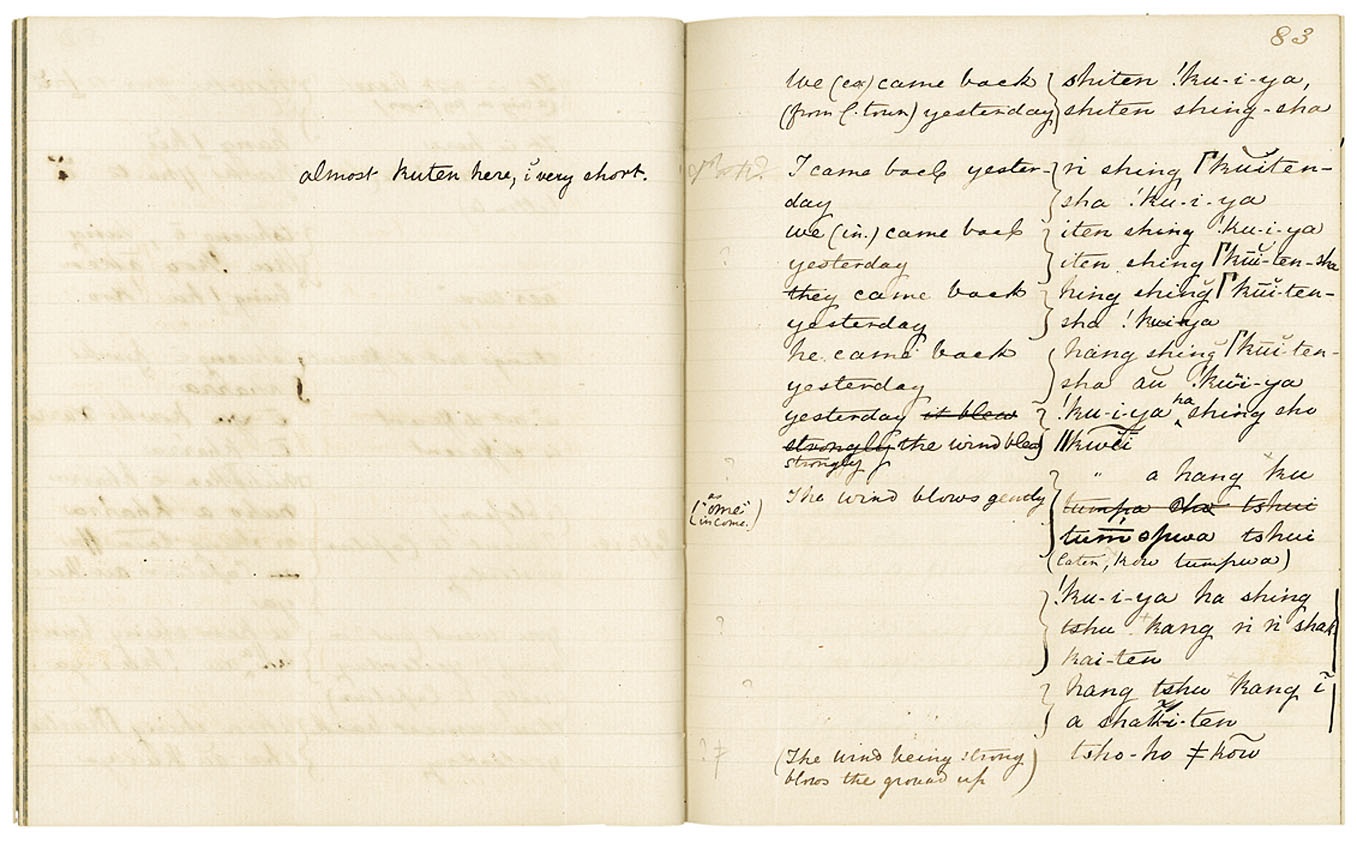 almost kuten here, ĭ very short.
83
We (ex) came back } shiten !ku-i-ya,
(from C. town) yesterday } shiten shing-sha
I came back yester- } ń shing ꓩkŭĭten-
day } sha !ku-i-ya
we (in.) came back } iten shing !ku-i-ya
? yesterday } iten shing ꓩkŭi-ten-sha
they came back } hing shing ꓩkŭi-ten-
yesterday } sha !kuiya
he came back } hang shing ꓩkŭi-ten-
yesterday } sha aŭ !kŭi-ya
yesterday it blew } !ku-i-ya ha shing sho
strongly the wind blew } ǁkwĕĭ
? strongly
" a hang ku
(as "ome" in come.) The wind blows gently } tumpa sho tshui
tum̄opwa tshui
(later, kow tumpwa)
!ku-i-ya ha shing
? tshu kang ń ń shak
kai-ten
? hang tshu kang ĭ
a shakki-ten
? ǂ (The wind being strong tsho-ho ǂkōw
blows the ground up)